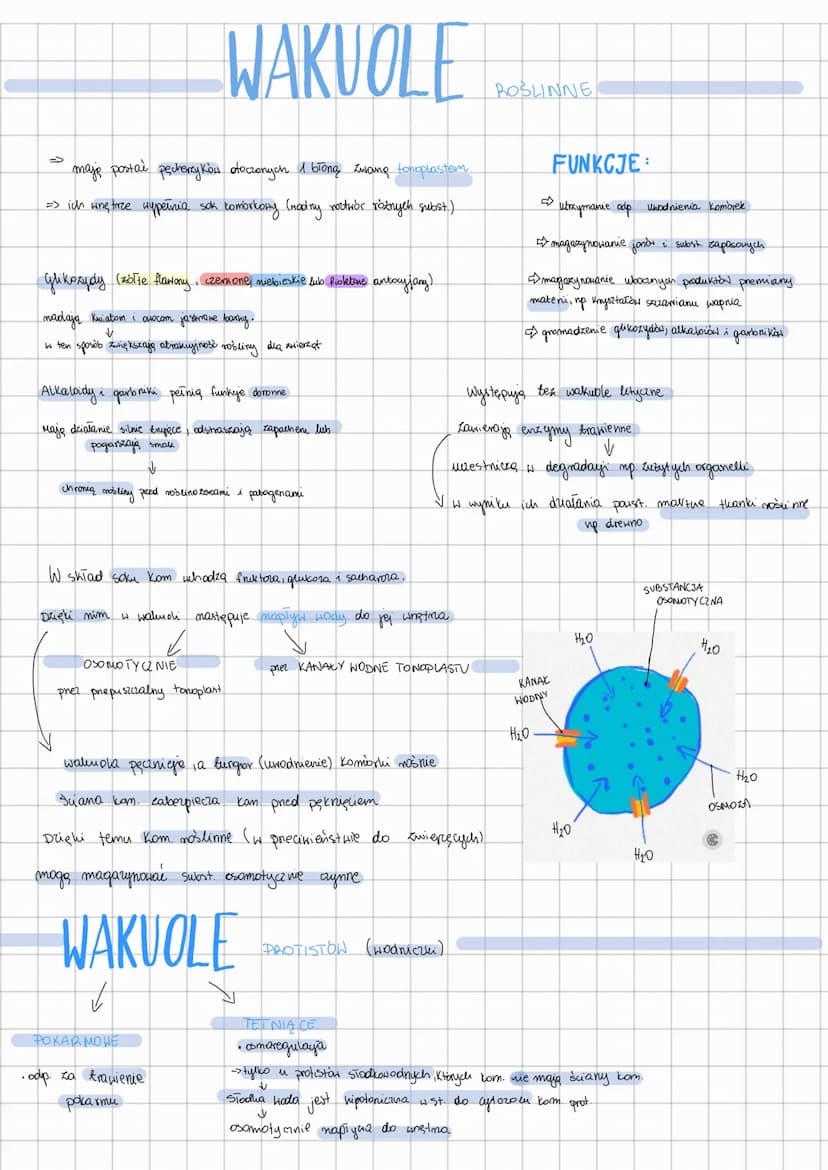 WAKUOLE ROŚLINNE
=> mają postać pęcherzyków otoczonych 1 błoną zwaną tonoplastem
=> ich wnętrze wypełnia sok komórkowy (wodny roztwór różnych subst.)
Glikozydy (żółte flawony, czerwone, niebieskie lub fioletowe antocyjany)
nadają kwiatom i owocom jaskrawe barwy.
↓
w ten sposób zwiększają atrakcyjność rośliny dla zwierząt
Alkaloidy i garbniki pełnią funkcje obronne
Mają działanie silnie trujące, odstraszają zapachem lub
pogarszają smak
↓
chronią rośliny przed roślinożercami i patogenami
FUNKCJE:
⇨ utrzymanie odp uwodnienia komórek
⇨ magazynowanie jonów i subst. zapasowych
⇨ magazynowanie ubocznych produktów przemiany
materii, np kryształów szczawianu wapnia
⇨ gromadzenie glikozydów, alkaloidów i garbników
Występują też wakuole lityczne
zawierają enzymy trawienne
↓
uczestniczą w degradacji np. zużytych organelli
w wyniku ich działania powst. martwe tkanki roślinne
np drewno
W skład soku kom wchodzą fruktoza, glukoza i sacharoza.
Dzięki nim w wakuoli następuje napływ wody do jej wnętrza
OSOMOTYCZNIE
przez przepuszczalny tonoplast
przez KANAŁY WODNE TONOPLASTU
wakuola pęcznieje, a turgor (uwodnienie) komórki rośnie
Ściana kom. zabezpiecza kom przed pęknięciem
Dzięki temu kom. roślinne (w przeciwieństwie do zwierzęcych)
mogą magazynować subst. osomotycznie czynne
SUBSTANCJA
OSOMOTYCZNA
H₂O
H₂O
KANAŁ
WODNY
H₂O
H₂O
OSMOZA
H₂O
H₂O
WAKUOLE PROTISTÓW (wodniczki)
POKARMOWE
• odp. za trawienie
pokarmu
TĘTNIĄCE
• osmoregulacja
→ tylko u protistów słodkowodnych, których kom. nie mają ściany kom.
↓
słodka woda jest hipotoniczna w st. do cytozolu kom. prot.
↓
osomotycznie napływa do wnętrza